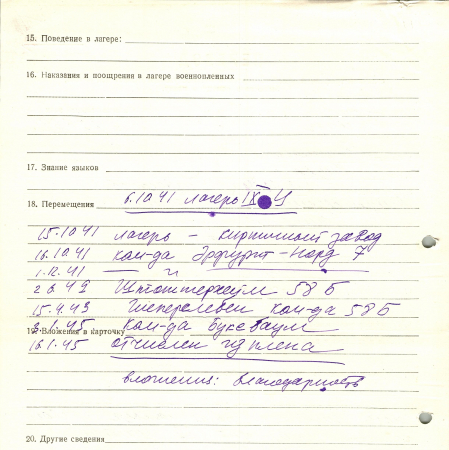 15. Поведение в лагере:
16. Наказания и поощрения в лагере военнопленных
17. Знание языков
18. Перемещения 6.10 41 лагерь IX Ц
15.10 41 лагерь - кирпичный завод
16.10 41 ком-да Эрфурт-Норд 7
1.12.41 — " —
Штоттерхейм 58 Б
15.4.43 ком-да 58 Б
19. Вложения в карточку
ком-да Буксбаум
16.1.45 отчислен из плена
вложения: благодарность
20. Другие сведения